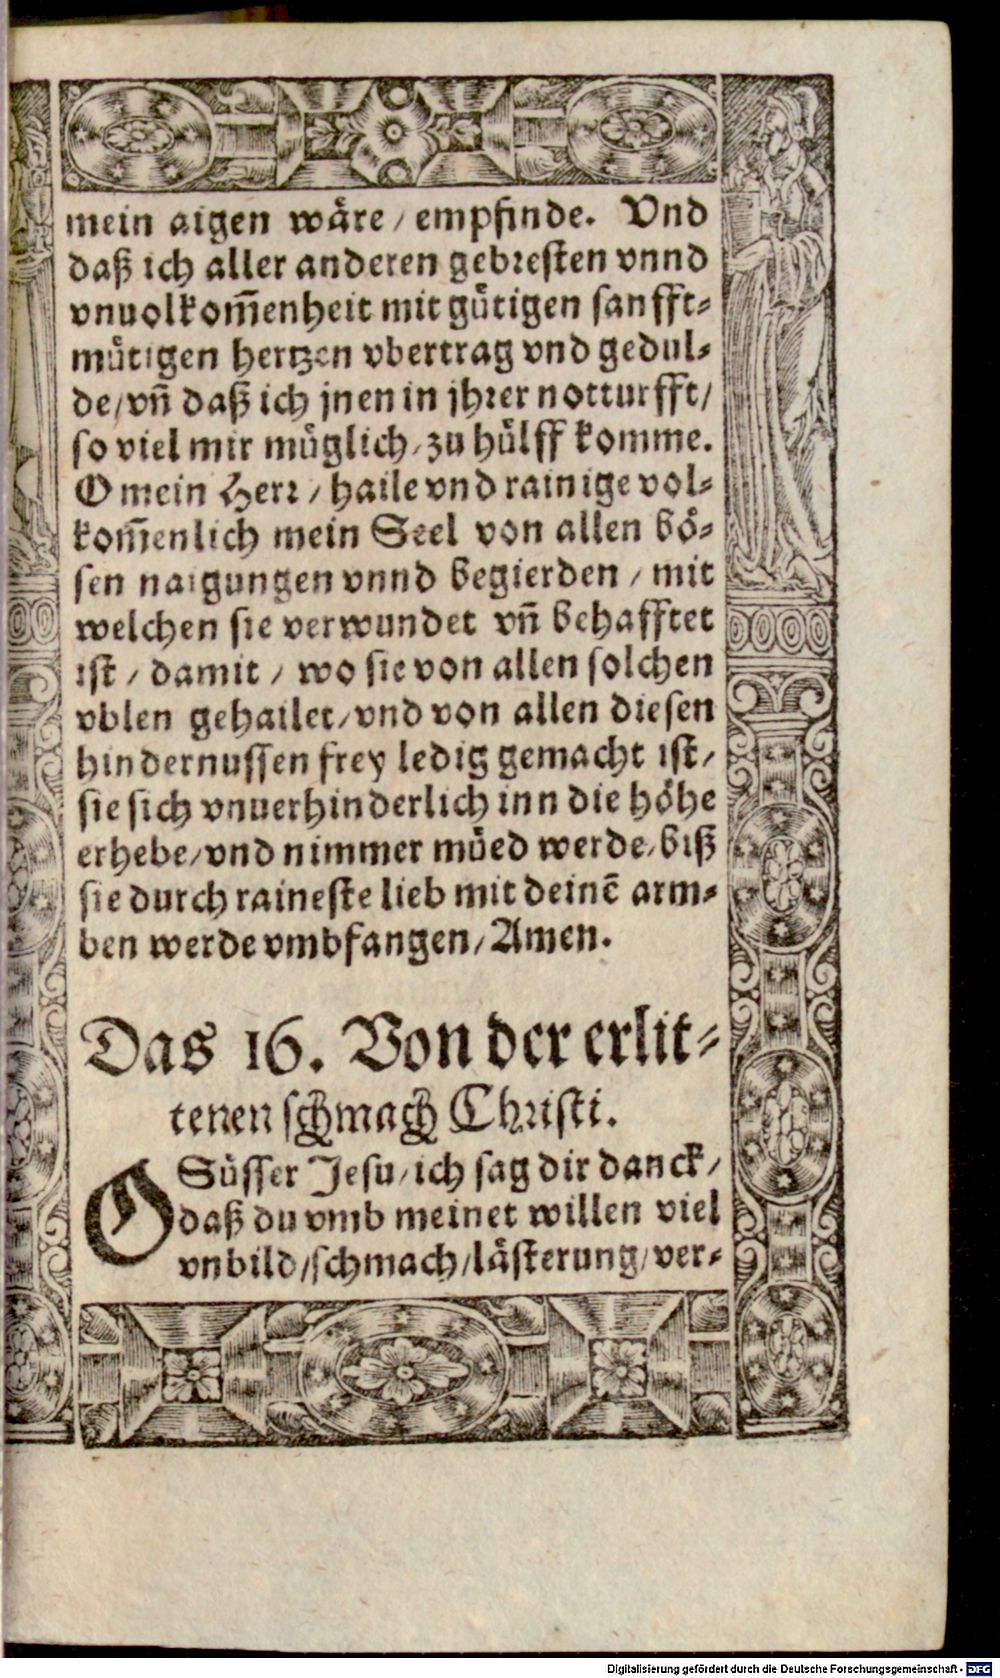 mein aigen wäre / empfinde. Vnd
daß ich aller anderen gebresten vnnd
vnuolkom̄enheit mit gütigen sanfft⸗
mütigen hertzen vbertrag vnd gedul⸗
de / vn̄ daß ich jnen in jhrer notturfft /
so viel mir müglich / zu hülff komme.
O mein Herr / haile vnd rainige vol⸗
kom̄enlich mein Seel von allen bö⸗
sen naigungen vnnd begierden / mit
welchen sie verwundet vn̄ behafftet
ist / damit / wo sie von allen solchen
vblen gehailet / vnd von allen diesen
hindernussen frey ledig gemacht ist /
sie sich vnuerhinderlich inn die höhe
erhebe / vnd nimmer müed werde / biß
sie durch raineste lieb mit deinē arm⸗
ben werde vmbfangen / Amen.
Das 16. Von der erlit⸗
tenen schmach Christi.
O Süsser Jesu / ich sag dir danck /
daß du vmb meinet willen viel
vnbild / schmach / lästerung / ver⸗
Digitalisierung gefördert durch die Deutsche Forschungsgemeinschaft - DFG